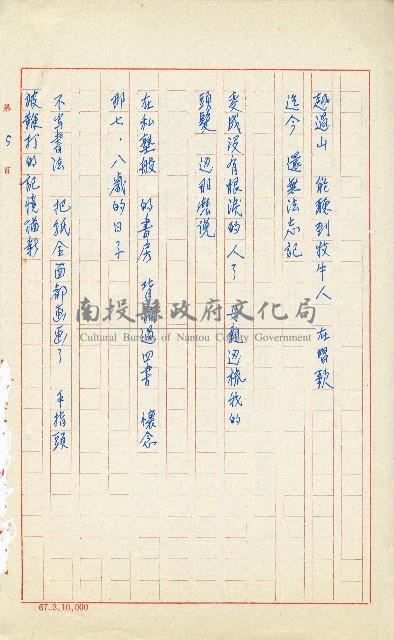 越過山　能聽到牧牛人　在唱歌
迄今　還無法忘記
變成沒有眼淚的人了　母親邊梳我的
頭髮　邊那麼說
在私塾般　的書房　背誦過四書　懷念
那七・八歲的日子
不寫書法　把紙全面都画画了　手指頭
被鞭打的記憶猶新
第 5 頁
南投縣政府文化局
Cultural Bureau of Nantou County Government
67.3.10,000